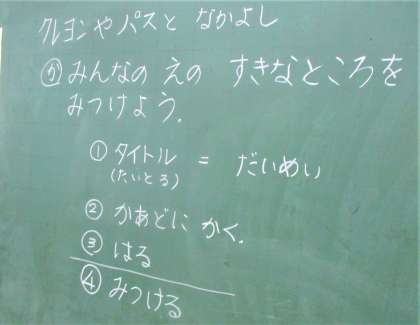 クレヨンやパスと なかよし
か みんなの えの すきなところを
みつけよう.
① タイトル = だいめい
(たいとる)
② かあどに かく.
③ はる
④ みつける